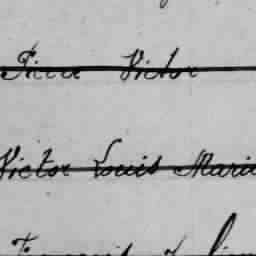 Pierre Victor
Victor Louis Maria